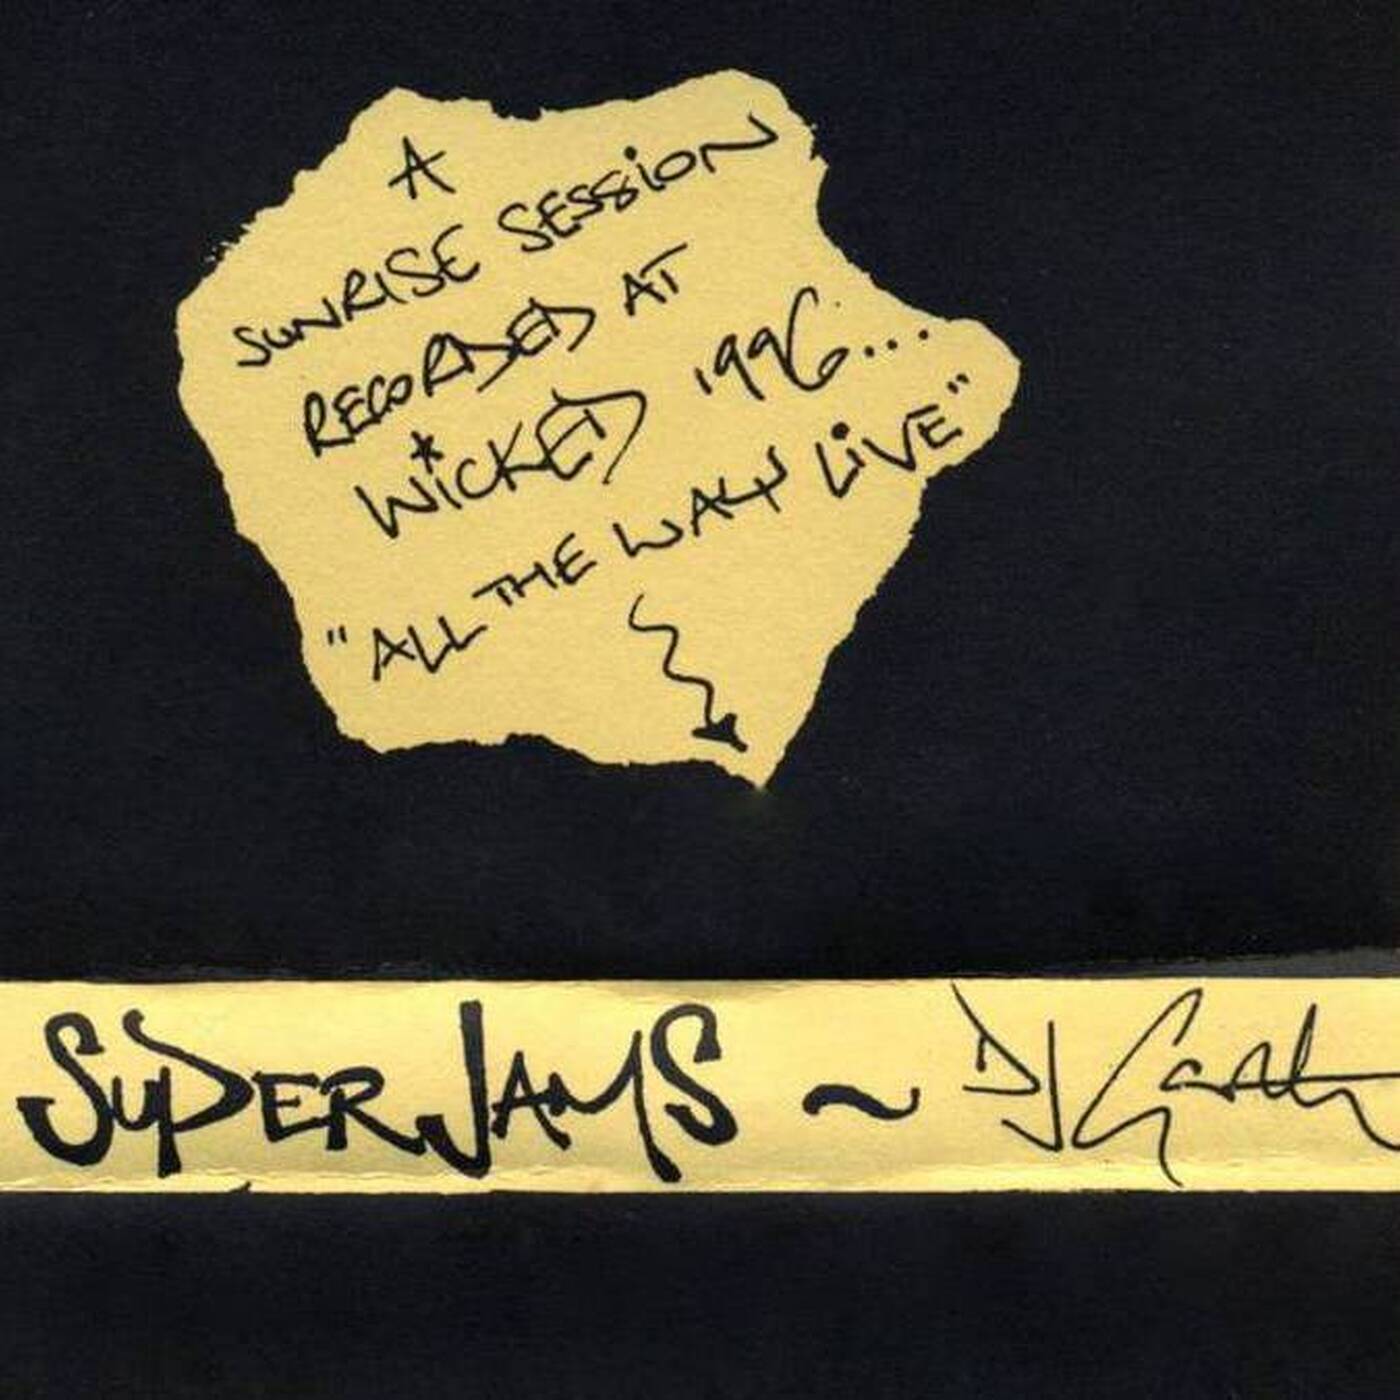 A
SUNRISE SESSION
RECORDED AT
WICKED '996...
"ALL THE WAY LIVE"
SUPERJAMS ~ DJ Garth